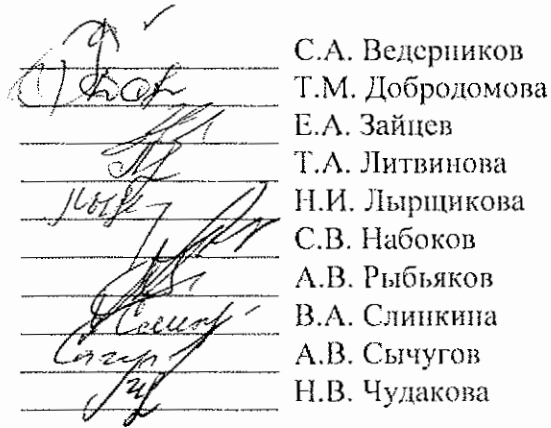 С.А. Ведерников
Т.М. Добродомова
Е.А. Зайцев
Т.А. Литвинова
Н.И. Лырщикова
С.В. Набоков
А.В. Рыбьяков
В.А. Слинкина
А.В. Сычугов
Н.В. Чудакова